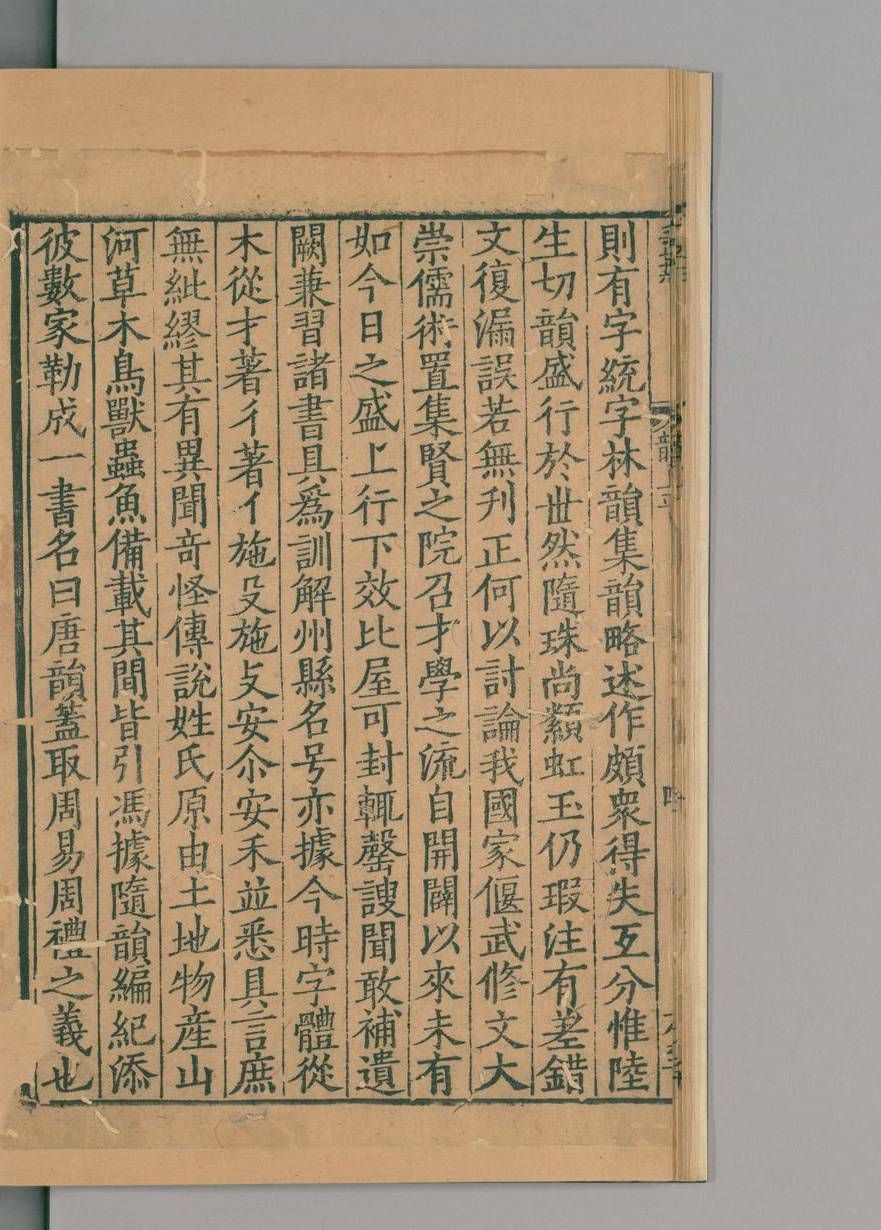 則有字統字林韻集韻略述作頗衆得失互分惟陸
生切韻盛行於丗然隨珠尚纇虹玉仍瑕注有差錯
文復漏誤若無刋正何以討論我國家偃武修文大
崇儒術置集賢之院召才學之流自開闢以來未有
如今日之盛上行下效比屋可封輒罄謏聞敢補遺
闕兼習諸書具爲訓解州縣名号亦據今時字體從
木從才著彳著亻施殳施攴安尒安禾並悉具言庶
無紕繆其有異聞奇怪傳說姓氏原由土地物產山
河草木鳥獸蟲魚備載其閒皆引馮據隨韻編紀添
彼數家勒成一書名曰唐韻蓋取周易周禮之義也